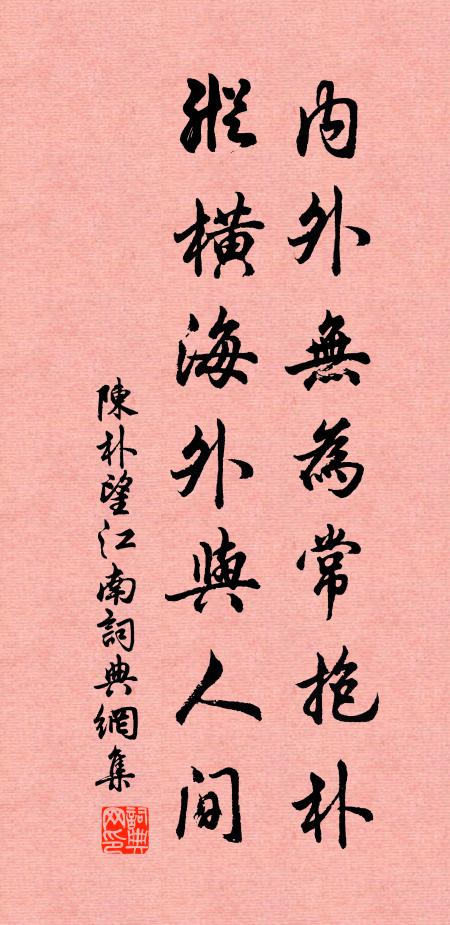 內外無為常抱朴
縱橫海外與人間
陳朴望江南詞典網集
詞典網印